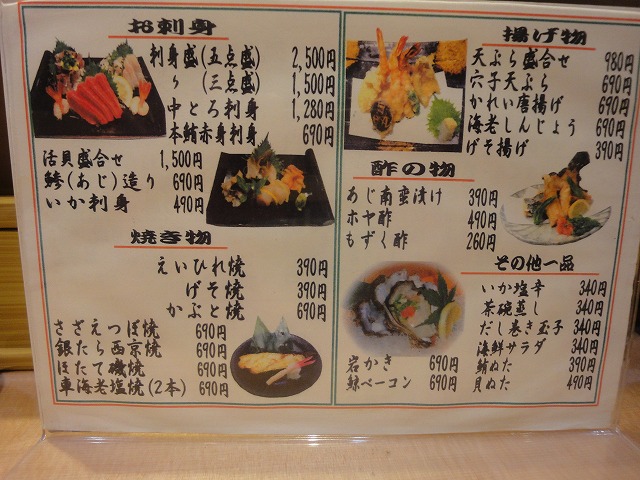 お刺身
刺身盛(五点盛) 2,500円
〃 (三点盛) 1,500円
中とろ刺身 1,280円
本鮪赤身刺身 690円
活貝盛合せ 1,500円
鯵(あじ)造り 690円
いか刺身 490円
焼き物
えいひれ焼 390円
げそ焼 390円
かぶと焼 690円
さざえつぼ焼 690円
銀たら西京焼 690円
ほたて磯焼 690円
車海老塩焼(2本) 690円
揚げ物
天ぷら盛合せ 980円
穴子天ぷら 690円
かれい唐揚げ 690円
海老しんじょう 690円
げそ揚げ 390円
酢の物
あじ南蛮漬け 390円
ホヤ酢 490円
もずく酢 260円
その他一品
いか塩辛 340円
茶碗蒸し 340円
だし巻き玉子 340円
海鮮サラダ 340円
鮪ぬた 390円
貝ぬた 490円
岩かき 690円
鯨ベーコン 690円